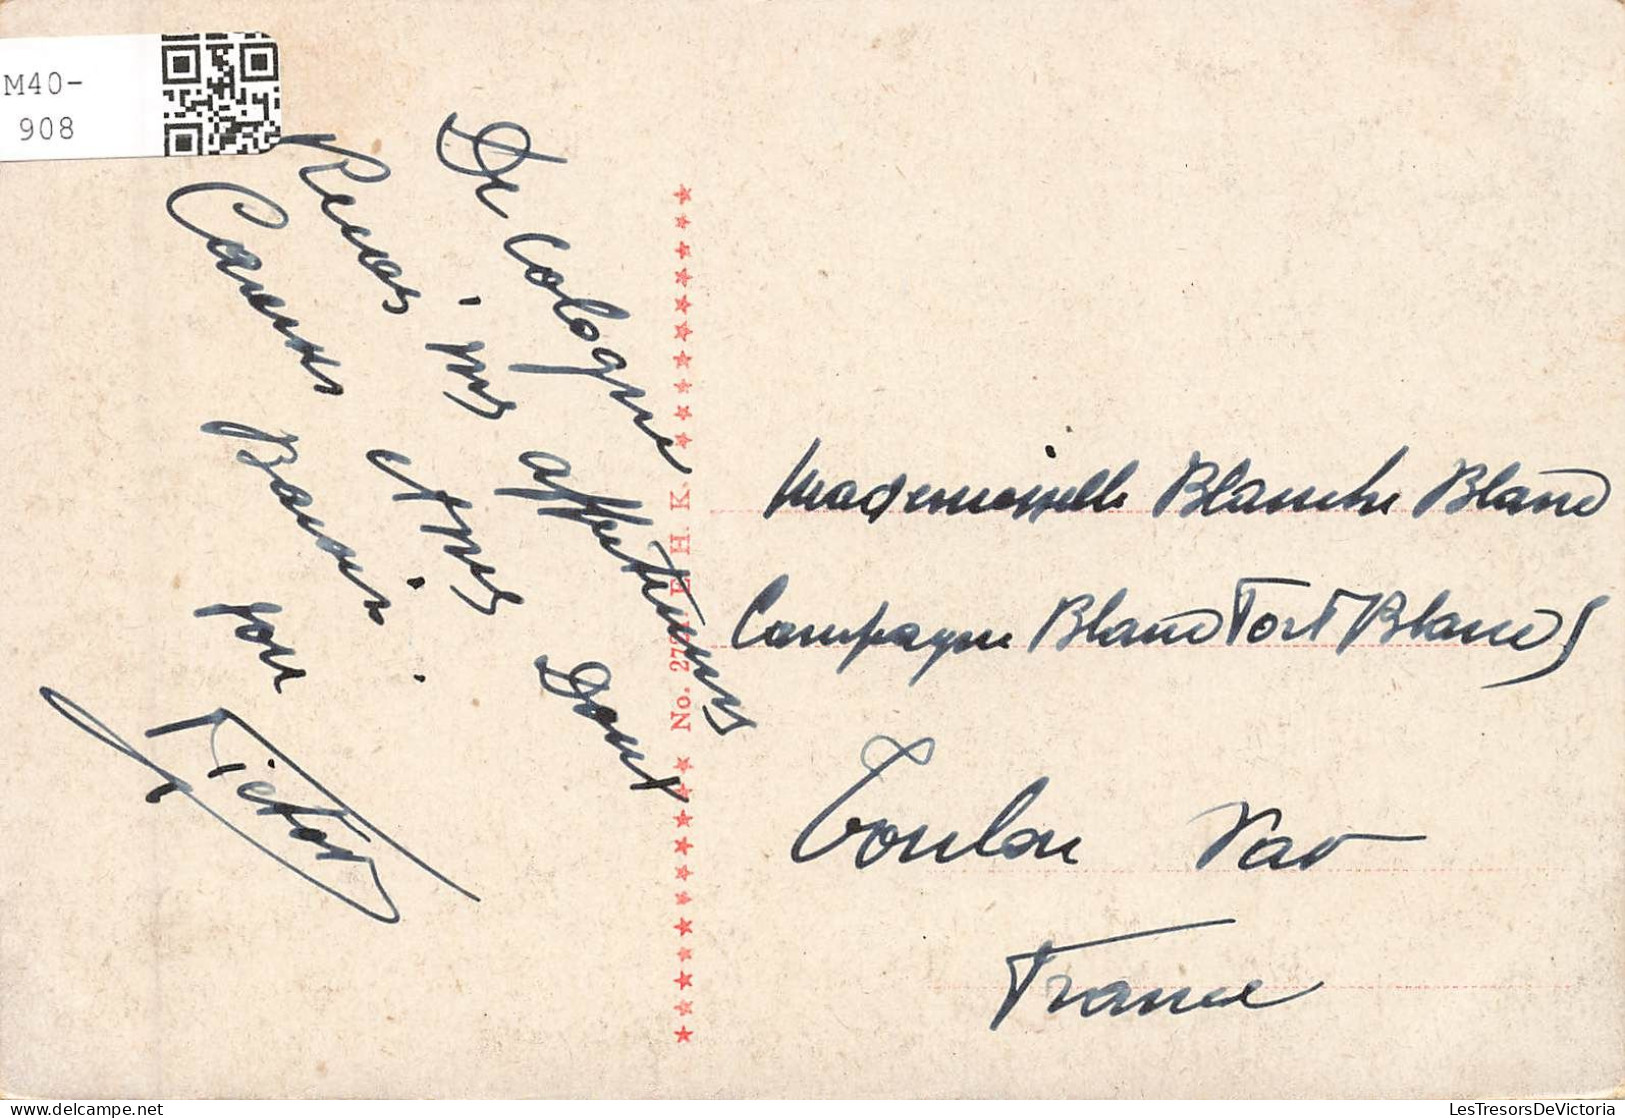 M40-
908
De Cologne
Recois mes affectueuses
Caresses et mes Doux
Baisers
ton
Victor
No. 27 E. H. K.
Mademoiselle Blanche Blanc
Campagne Blanc Fort Blanc
Toulon Var
France
LesTresorsDeVictoria